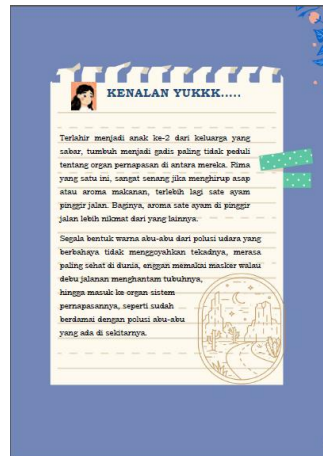 KENALAN YUKKK.....
Terlahir menjadi anak ke-2 dari keluarga yang
sabar, tumbuh menjadi gadis paling tidak peduli
tentang organ pernapasan di antara mereka. Rima
yang satu ini, sangat senang jika menghirup asap
atau aroma makanan, terlebih lagi sate ayam
pinggir jalan. Baginya, aroma sate ayam di pinggir
jalan lebih nikmat dari yang lainnya.
Segala bentuk warna abu-abu dari polusi udara yang
berbahaya tidak menggoyahkan tekadnya, merasa
paling sehat di dunia, enggan memakai masker walau
debu jalanan menghantam tubuhnya,
hingga masuk ke organ sistem
pernapasannya, seperti sudah
berdamai dengan polusi abu-abu
yang ada di sekitarnya.